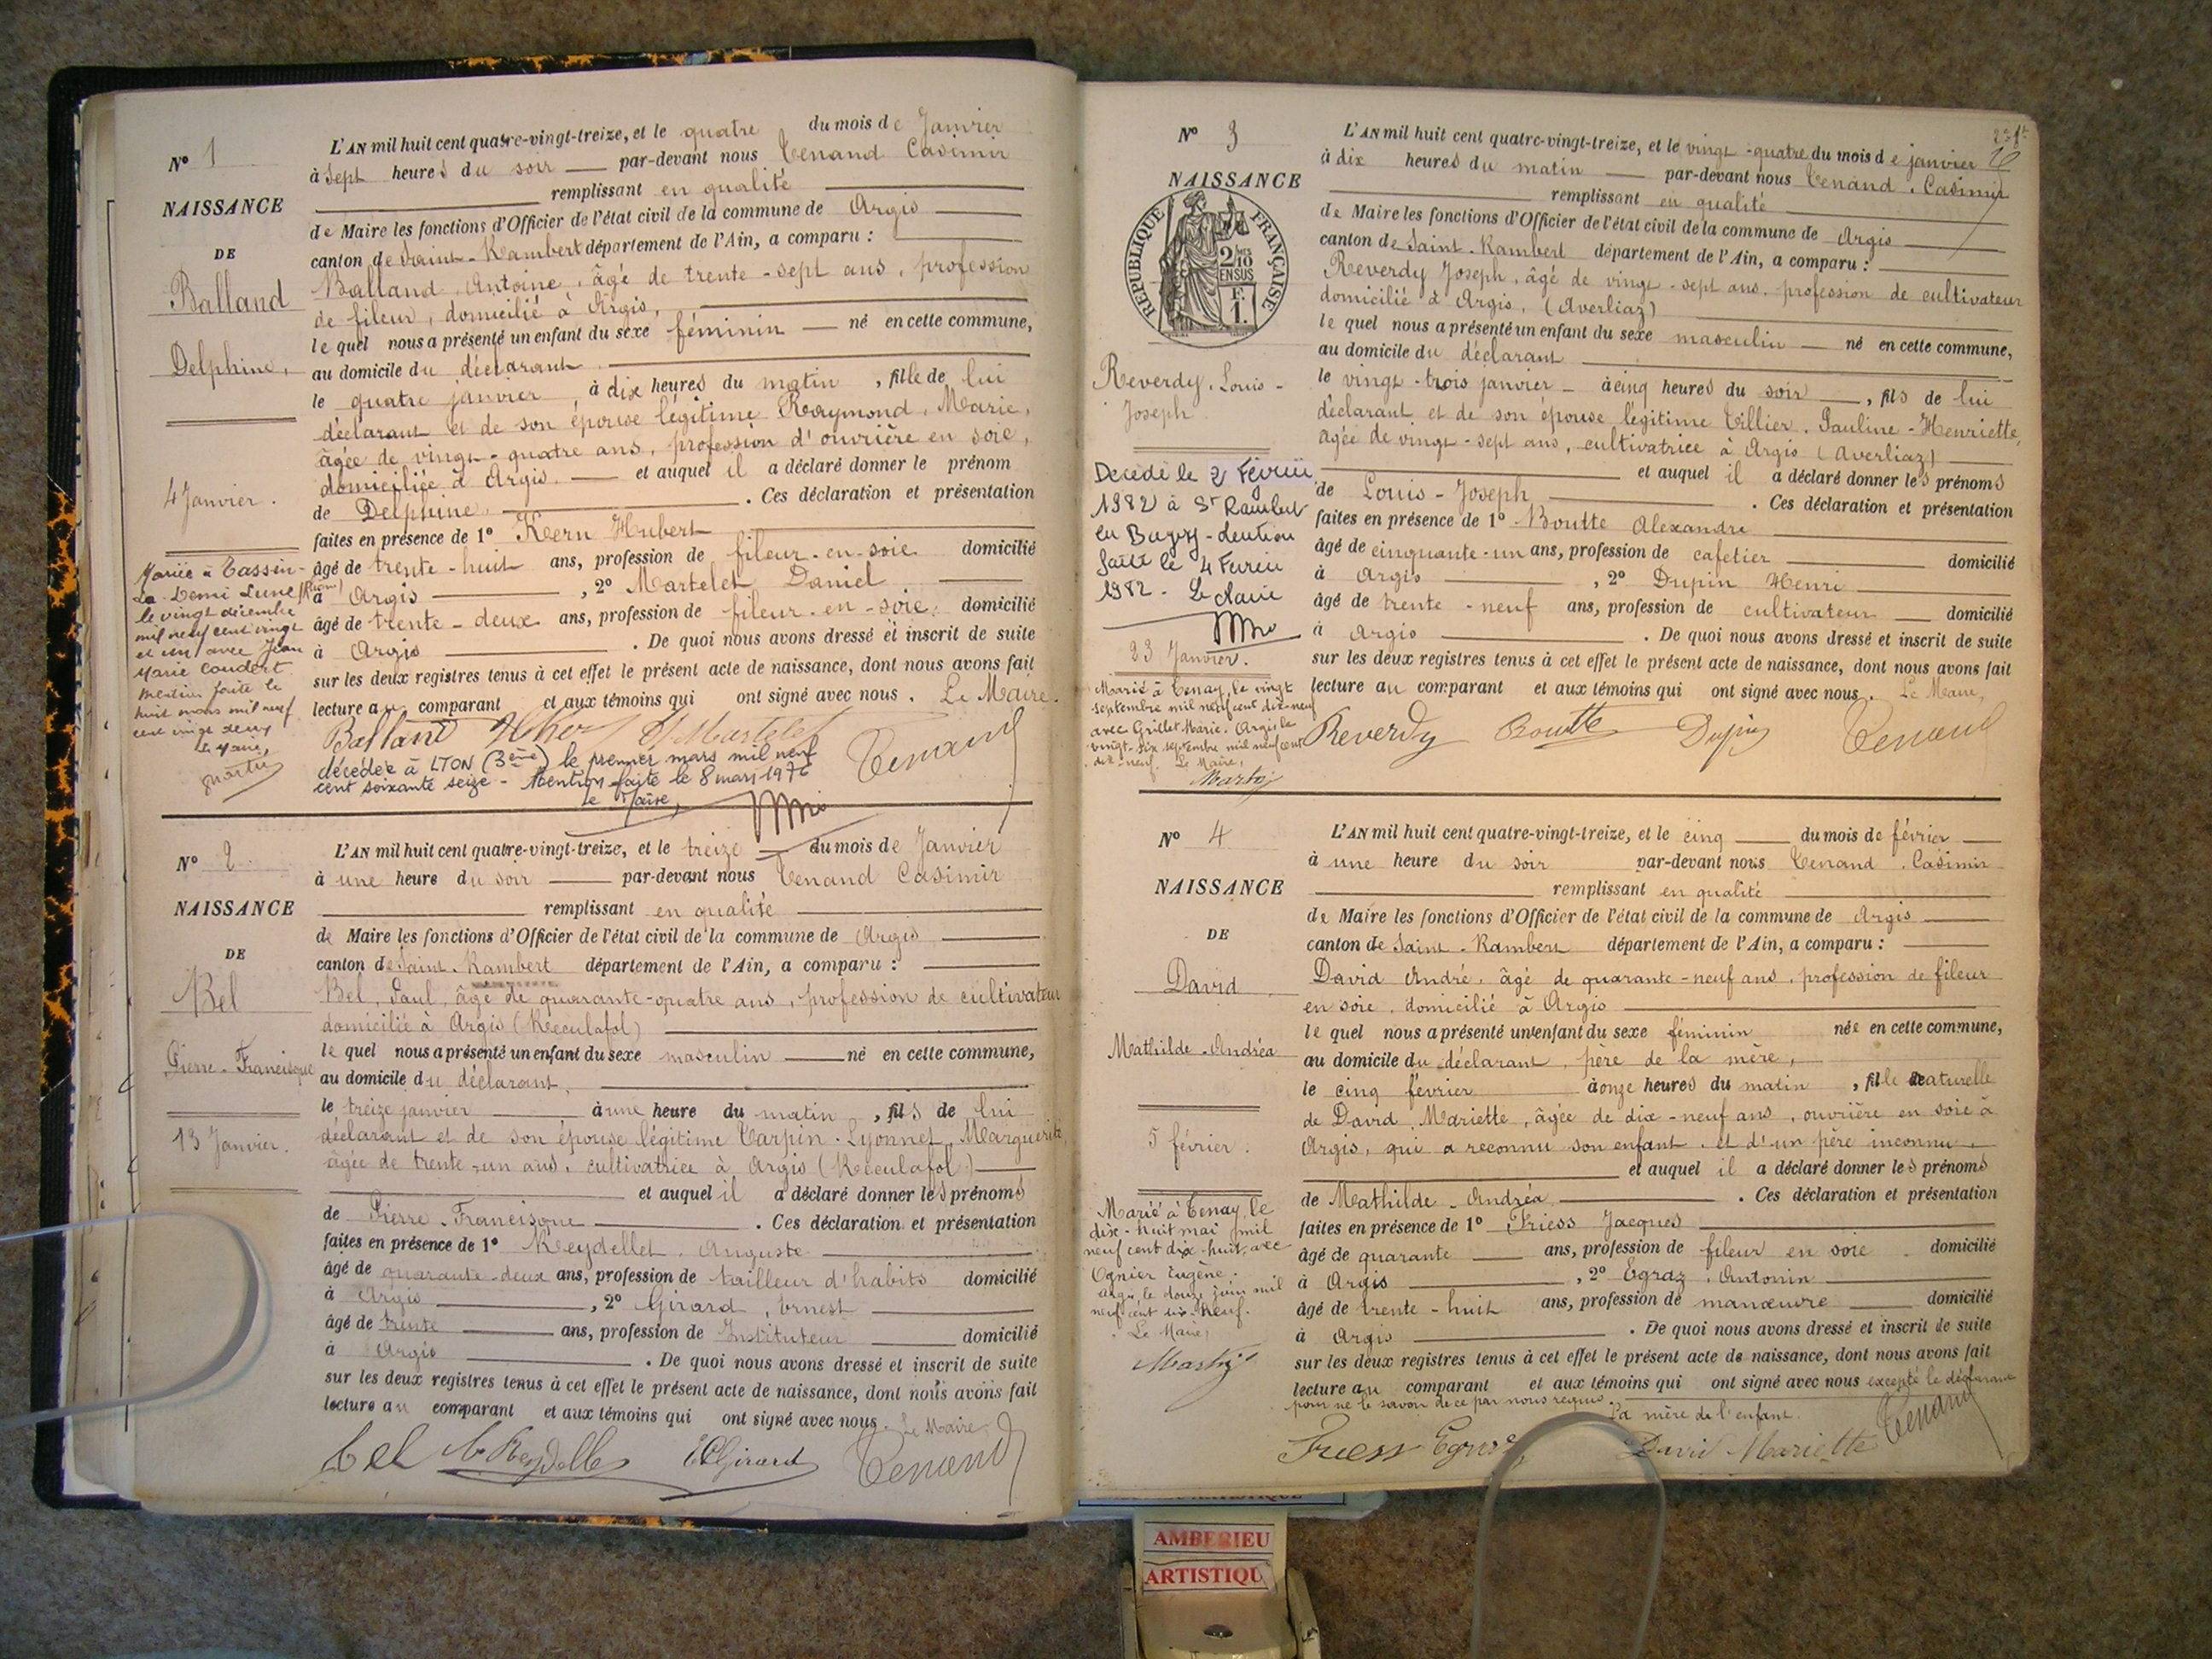 N° 1
NAISSANCE
DE
Balland
Delphine,
4 Janvier.
Mariée à Tassin-
La-Demi Lune (Rhône)
le vingt décembre
mil neuf cent vingt
et un avec Jean
Marie Coudert
Mention faite le
huit mars mil neuf
cent vingt deux
Le Maire,
L'AN mil huit cent quatre-vingt-treize, et le quatre du mois de Janvier
à sept heures du soir par-devant nous Tenand Casimir
remplissant en qualité
de Maire les fonctions d'Officier de l'état civil de la commune de Argis
canton de Saint-Rambert département de l'Ain, a comparu :
Balland Antoine, âgé de trente-sept ans, profession
de fileur, domicilié à Argis,
le quel nous a présenté un enfant du sexe féminin né en cette commune,
au domicile du déclarant
le quatre janvier, à dix heures du matin, fille de lui
déclarant et de son épouse légitime Raymond, Marie,
âgée de vingt-quatre ans, profession d'ouvrière en soie,
domiciliée à Argis. et auquel il a déclaré donner le prénom
de Delphine. . Ces déclaration et présentation
faites en présence de 1° Kern Hubert
âgé de trente-huit ans, profession de fileur-en-soie domicilié
à Argis , 2° Martelet Daniel
âgé de trente-deux ans, profession de fileur-en-soie, domicilié
à Argis . De quoi nous avons dressé et inscrit de suite
sur les deux registres tenus à cet effet le présent acte de naissance, dont nous avons fait
lecture au comparant et aux témoins qui ont signé avec nous. Le Maire.
Balland H Kern Martelet Tenand
décédée à LYON (3ème) le premier mars mil neuf
cent soixante seize - Mention faite le 8 mars 1976
le Maire,
N° 2
NAISSANCE
DE
Bel
Pierre-Francisque
13 Janvier.
L'AN mil huit cent quatre-vingt-treize, et le treize du mois de Janvier
à une heure du soir par-devant nous Tenand Casimir
remplissant en qualité
de Maire les fonctions d'Officier de l'état civil de la commune de Argis
canton de Saint-Rambert département de l'Ain, a comparu :
Bel, Paul, âgé de quarante-quatre ans, profession de cultivateur
domicilié à Argis (Reculafol)
le quel nous a présenté un enfant du sexe masculin né en cette commune,
au domicile du déclarant,
le treize janvier à une heure du matin, fils de lui
déclarant et de son épouse légitime Carpin-Lyonnet, Marguerite
âgée de trente-un ans, cultivatrice à Argis (Reculafol)
et auquel il a déclaré donner les prénoms
de Pierre-Francisque . Ces déclaration et présentation
faites en présence de 1° Reydellet, Auguste
âgé de quarante-deux ans, profession de tailleur d'habits domicilié
à Argis , 2° Girard, Ernest
âgé de trente ans, profession de Instituteur domicilié
à Argis . De quoi nous avons dressé et inscrit de suite
sur les deux registres tenus à cet effet le présent acte de naissance, dont nous avons fait
lecture au comparant et aux témoins qui ont signé avec nous. Le Maire
bel Reydellet Girard Tenand
231
N° 3
NAISSANCE
REPUBLIQUE FRANÇAISE
2/10 EN SUS
F. 1.
Reverdy. Louis-
Joseph
Décédé le 2 Février
1982 à St Rambert
en Bugey - Mention
faite le 4 Février
1982 - Le Maire
23 Janvier.
Marié à Tenay, le vingt
septembre mil neuf cent dix-neuf
avec Grillet Marie. Argis le
vingt-six septembre mil neuf cent
dix-neuf. Le Maire,
L'AN mil huit cent quatre-vingt-treize, et le vingt-quatre du mois de janvier
à dix heures du matin par-devant nous Tenand. Casimir
remplissant en qualité
de Maire les fonctions d'Officier de l'état civil de la commune de Argis
canton de Saint-Rambert département de l'Ain, a comparu :
Reverdy Joseph, âgé de vingt-sept ans, profession de cultivateur
domicilié à Argis, (Averliaz)
le quel nous a présenté un enfant du sexe masculin né en cette commune,
au domicile du déclarant
le vingt-trois janvier à cinq heures du soir, fils de lui
déclarant et de son épouse légitime Tillier. Pauline-Henriette,
âgée de vingt-sept ans, cultivatrice à Argis (Averliaz)
et auquel il a déclaré donner les prénoms
de Louis-Joseph . Ces déclaration et présentation
faites en présence de 1° Boutte Alexandre
âgé de cinquante-un ans, profession de cafetier domicilié
à Argis , 2° Dupin Henri
âgé de trente-neuf ans, profession de cultivateur domicilié
à Argis . De quoi nous avons dressé et inscrit de suite
sur les deux registres tenus à cet effet le présent acte de naissance, dont nous avons fait
lecture au comparant et aux témoins qui ont signé avec nous. Le Maire,
Reverdy Boutte Dupin Tenand
N° 4
NAISSANCE
DE
David
Mathilde-Andréa
5 février.
Marié à Tenay, le
dix-huit mai mil
neuf cent dix-huit, avec
Ognier Eugène.
Argis, le douze juin mil
neuf cent dix-neuf.
Le Maire,
L'AN mil huit cent quatre-vingt-treize, et le cinq du mois de février
à une heure du soir par-devant nous Tenand. Casimir
remplissant en qualité
de Maire les fonctions d'Officier de l'état civil de la commune de Argis
canton de Saint-Rambert département de l'Ain, a comparu :
David André, âgé de quarante-neuf ans, profession de fileur
en soie, domicilié à Argis
le quel nous a présenté un enfant du sexe féminin née en cette commune,
au domicile du déclarant, père de la mère,
le cinq février à onze heures du matin, fille naturelle
de David, Mariette, âgée de dix-neuf ans, ouvrière en soie à
Argis, qui a reconnu son enfant, et d'un père inconnu.
et auquel il a déclaré donner les prénoms
de Mathilde-Andréa . Ces déclaration et présentation
faites en présence de 1° Friess Jacques
âgé de quarante ans, profession de fileur en soie domicilié
à Argis , 2° Egraz, Antonin
âgé de trente-huit ans, profession de manœuvre domicilié
à Argis . De quoi nous avons dressé et inscrit de suite
sur les deux registres tenus à cet effet le présent acte de naissance, dont nous avons fait
lecture au comparant et aux témoins qui ont signé avec nous excepté le déclarant
pour ne le savoir de ce par nous requis.
La mère de l'enfant.
Friess Egraz David Mariette Tenand
AMBERIEU
ARTISTIQU